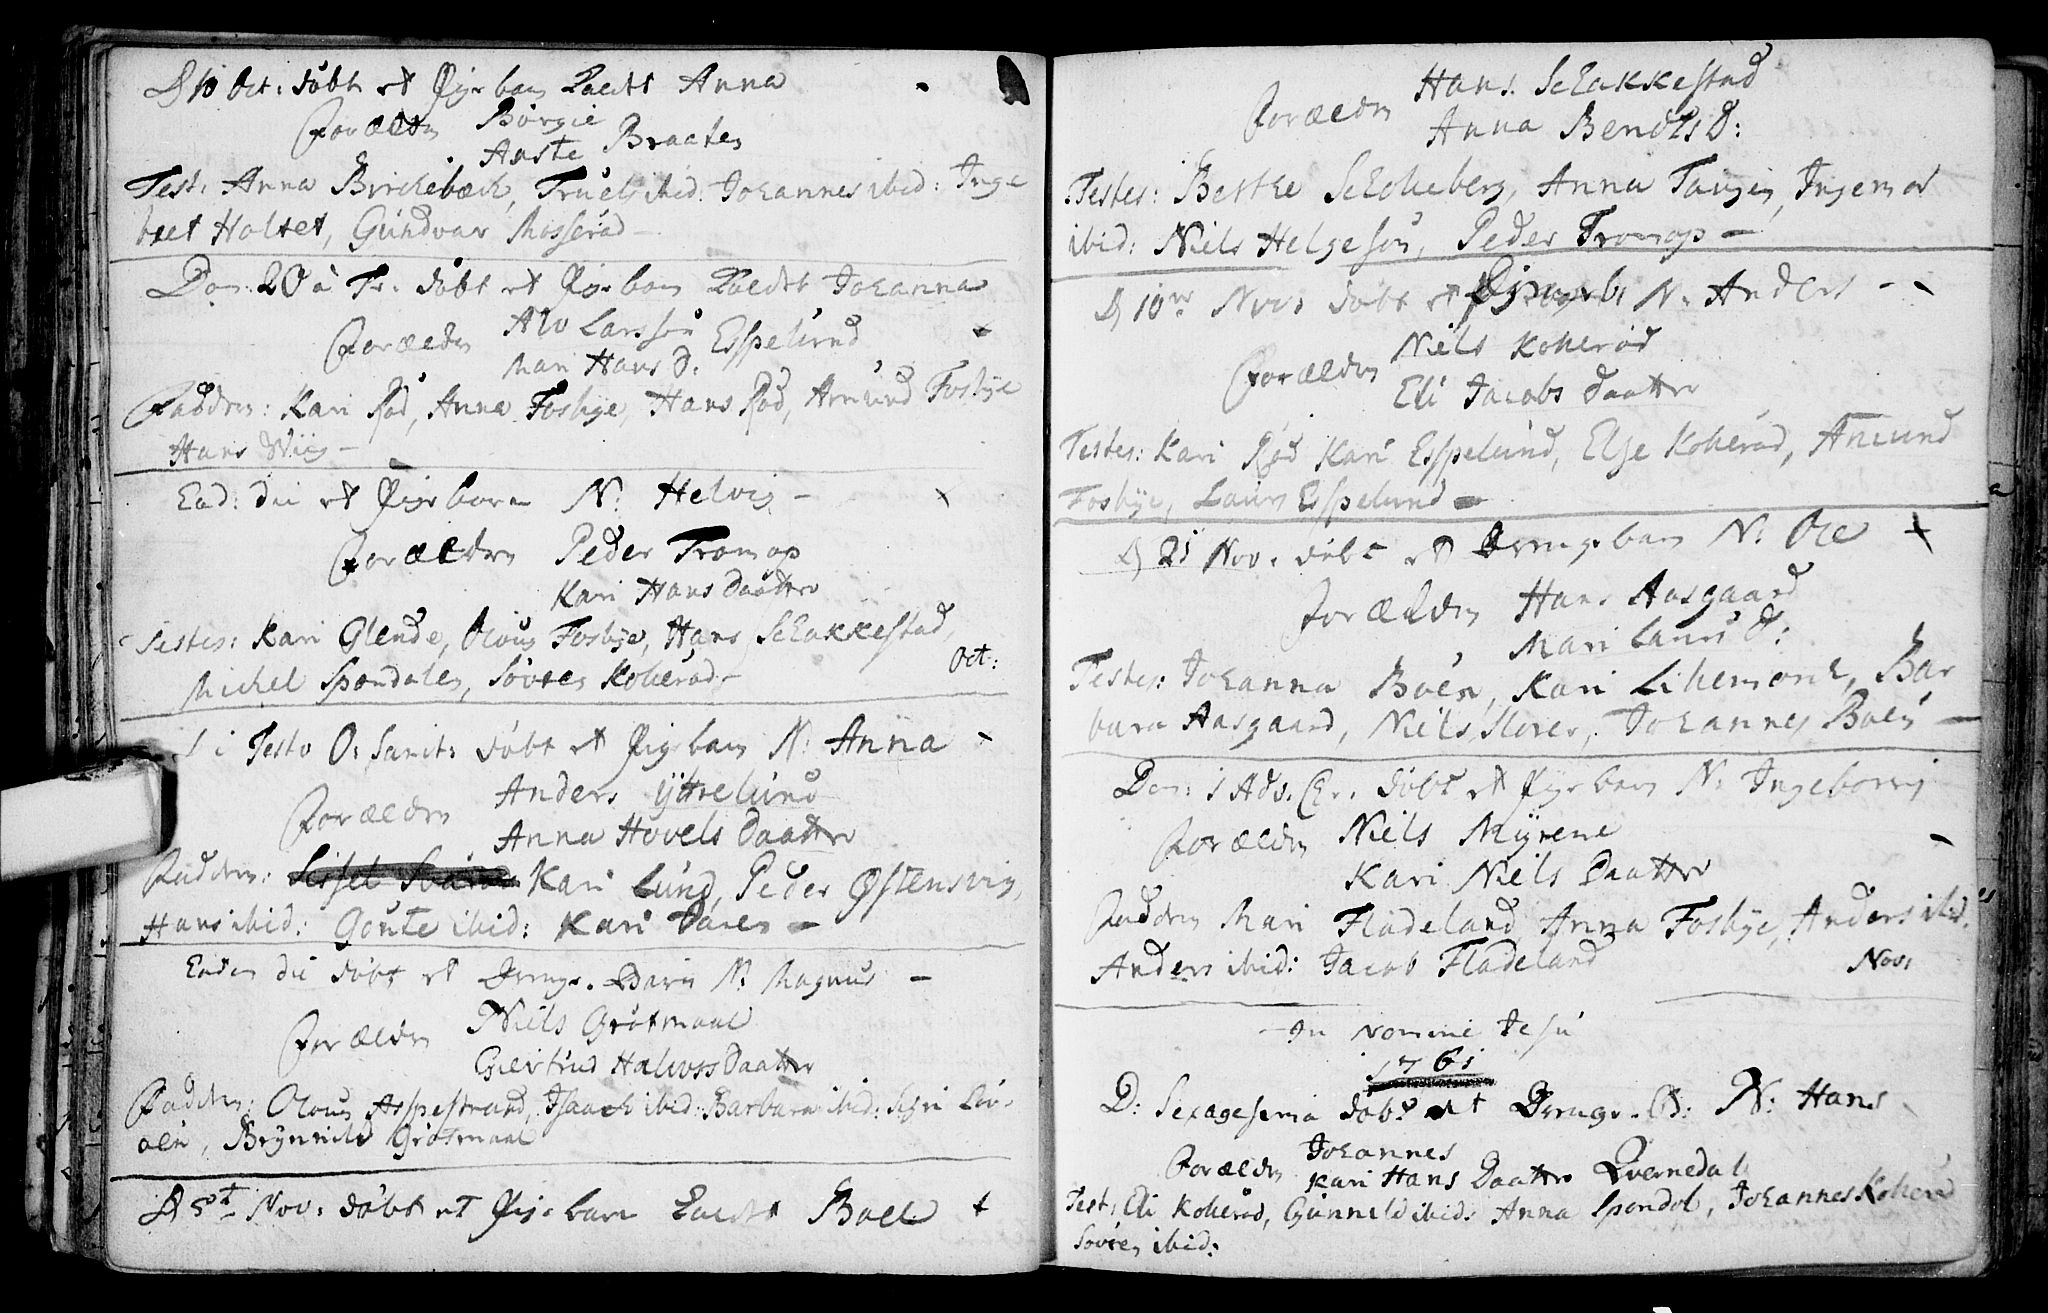 D 10 Oct: døbt et Pigebarn kaldt Anna
Forældre Børgie
Anste Braaten
Test: Anna Birchebæch, Truels ibid: Johannes ibid: Inge
bret Holtet, Gundvar Mosserød
Dom 20 à Tr. døbt et Pigebarn kaldt Johanna
Forældre Alv Larssøn Espelund
Mari Hans D.
Faddere: Kari Rød, Anna Fosbye, Hans Rød, Amund Fosbye
Hans Wiig
Ead: die et Pigebarn N: Helvig
Forældre Peder Tromop
Kari Hans Daatter
Testes: Kari Glende, Olous Fosbye, Hans Schakkestad,
Michel Spondalen, Søvren Kollerød
Oct:
i Festo O: Sanct: døbt et Pigebarn N: Anna
Forældre Anders Ÿttrelund
Anna Hovels Daatter
Faddere: Kari Lund, Peder Østensvig,
Hans ibid: Goute ibid: Kari Dalen
Eadem die døbt et Drenge-Barn N: Magnus
Forældre Niels Grøtmaal
Giertrud Halvors Daatter
Faddere: Olous Aspestrand, Isaach ibid: Barbara ibid: Sigri
Brÿnnild Grøtmaal
D 5t Nov: døbt et Pigebarn kaldt Boel
Forældre Hans Schakkestad
Anna Bendts D:
Testes: Berthe Scholleberg, Anna Tangen, Ingemor
ibid: Niels Helgesøn, Peder Tromop
D 10de Nov: døbt et N: Anders
Forældre Niels Kollerød
Eli Jacobs Daatter
Testes: Kari Rød Kari Espelund, Else Kollerød, Amund
Fosbye, Lars Espelund
D 21 Nov. døbt et Drengebarn N: Ole
Forældre Hans Aasgaard
Mari Laurs D:
Testes: Johanna Boen, Kari Lillemorch, Bar
bara Aasgaard, Niels Slorer, Johannes Boen
Dom: 1 Adv. Chr. døbt et Pigebarn N: Ingeborrig
Forældre Niels Mÿrene
Kari Niels Daatter
Faddere Mari Fladeland Anna Fosbye, Anders ibid:
Anders ibid: Jacob Fladeland
Nov:
In Nomine Jesu
1761
D: Sexagesima døbt et Drenge-B: N: Hans
Forældre Johannes
Kari Hans Daatter Qvernedal
Test: Eli Kollerød, Gunneld ibid: Anna Spondol, Johannes Kollerød
Søvren ibid: